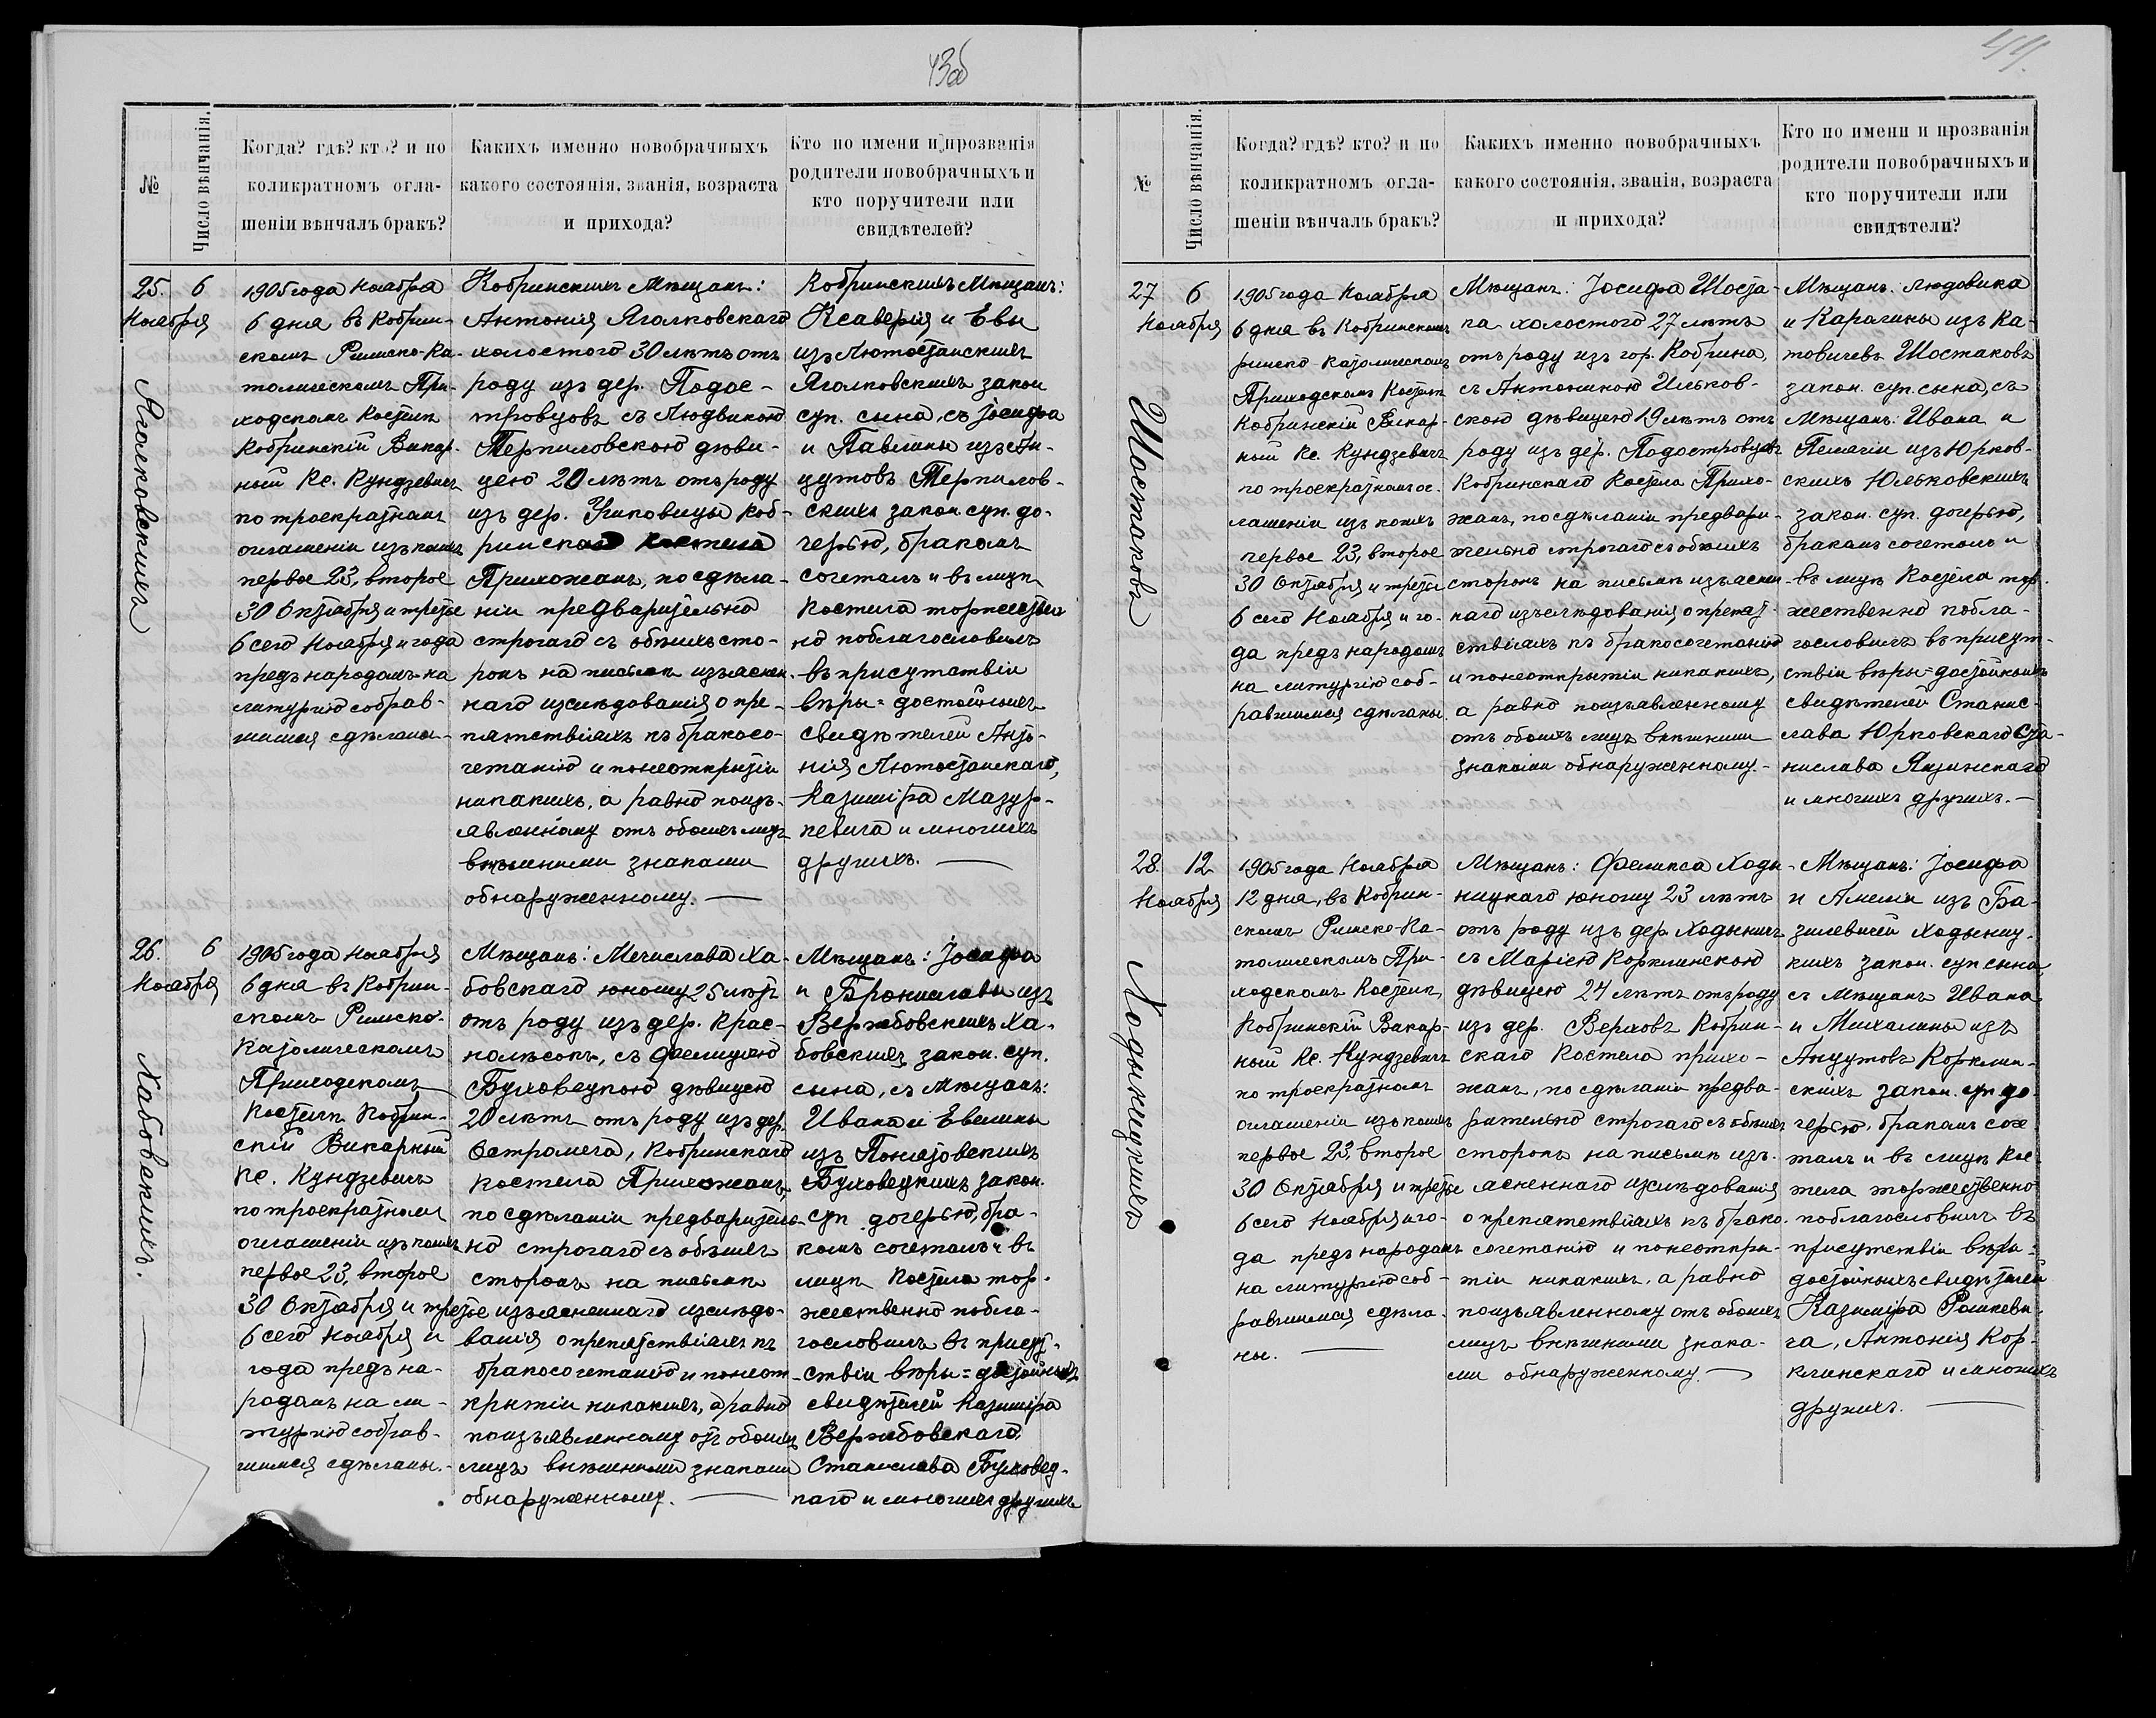 43об
44.
№
Число вѣнчанія.
Когда? гдѣ? кто? и по
коликратномъ огла-
шеніи вѣнчалъ бракъ?
Какихъ именно новобрачныхъ
какого состоянія, званія, возраста
и прихода?
Кто по имени и прозванія
родители новобрачныхъ и
кто поручители или
свидѣтелей?
25. 6
Ноября
Яголковскихъ
1905 года Ноября
6 дня въ Кобрин-
скомъ Римско-Ка-
толическомъ При-
ходскомъ Костелѣ
Кобринскій Викар-
ный Кс. Кундзевичъ
по троекратномъ
оглашеніи изъ коихъ
первое 23, второе
30 Октября и третье
6 сего Ноября и года
предъ народомъ на
литургію собрав-
шимся сдѣланы.-
Кобринскихъ Мѣщанъ:
Антонія Яголковскаго
холостого 30 лѣтъ отъ
роду изъ дер. Подос-
тровцовъ съ Людвикою
Терпиловскою дѣви-
цею 20 лѣтъ отъ роду
изъ дер. Коб-
ринскаго Костела
Прихожанъ, по сдѣла-
ніи предварительно
строгаго съ обѣихъ сто-
ронъ на письмѣ изъяснен-
наго изслѣдованія о пре-
пятствіяхъ къ бракосо-
четанію и по неоткрытіи
никакихъ, а равно по изъ-
явленному отъ обоихъ лицъ
внѣшними знаками
обнаруженному. —
Кобринскихъ Мѣщанъ:
Ксаверія и Евы
изъ Лютостанскихъ
Яголковскихъ закон
суп. сына, съ Іосифа
и Павлины изъ Яни-
цутовъ Терпилов-
скихъ закон. суп. до-
черью, бракомъ
сочеталъ и въ лицѣ
Костела торжествен
но поблагословилъ
въ присутствіи
вѣры=достойныхъ
свидѣтелей Анто-
нія Лютостанскаго,
Казиміра Мазур-
кевича и многихъ
другихъ. —
26. 6
Ноября
Хабовскихъ.
1905 года Ноября
6 дня въ Кобрин-
скомъ Римско-
Католическомъ
Приходскомъ
Костелѣ Кобрин-
скій Викарный
Кс. Кундзевичъ
по троекратномъ
оглашеніи изъ коихъ
первое 23, второе
30 Октября и третье
6 сего Ноября и
года предъ на-
родомъ на ли-
тургію собрав-
шимся сдѣланы.-
Мѣщанъ: Мечислава Ха-
бовскаго юношу 25 лѣтъ
отъ роду изъ дер. Крас-
нолѣсокъ, съ Фелицiею
Буховецкою дѣвицею
20 лѣтъ отъ роду изъ дер.
Остромеча, Кобринскаго
Костела Прихожанъ,
по сдѣланіи предваритель-
но строгаго съ обѣихъ
сторонъ на письмѣ
изъясненнаго изслѣдо-
ванія о препятствіяхъ къ
бракосочетанію и по неот-
крытіи никакихъ, а равно
по изъявленному отъ обоихъ
лицъ внѣшними знаками
обнаруженному. —
Мѣщанъ: Іосифа
и Брониславы изъ
Вержбовскихъ Ха-
бовскихъ закон. суп.
сына, съ Мѣщанъ:
Ивана и Евелины
изъ Понятовскихъ
Буховецкихъ закон.
суп. дочерью, бра-
комъ сочеталъ и въ
лицѣ Костела тор-
жественно побла-
гословилъ въ присут-
ствіи вѣры=достойныхъ
свидѣтелей Казиміра
Вержбовскаго,
Станислава Буховец-
каго и многихъ другихъ
№
Число вѣнчанія.
Когда? гдѣ? кто? и по
коликратномъ огла-
шеніи вѣнчалъ бракъ?
Какихъ именно новобрачныхъ
какого состоянія, званія, возраста
и прихода?
Кто по имени и прозванія
родители новобрачныхъ и
кто поручители или
свидѣтели?
27 6
Ноября
Шостаковъ
1905 года Ноября
6 дня въ Кобринскомъ
римско католическомъ
Приходскомъ Костелѣ
Кобринскій Викар-
ный Кс. Кундзевичъ
по троекратномъ ог-
лашеніи изъ коихъ
первое 23, второе
30 Октября и третье
6 сего Ноября и го-
да предъ народомъ
на литургію соб-
равшимся сдѣланы.
Мѣщанъ: Іосифа Шоста-
ка холостого 27 лѣтъ
отъ роду изъ гор. Кобрина,
съ Антониною Юльков-
скою дѣвицею 19 лѣтъ отъ
роду изъ дер. Подостровцовъ
Кобринскаго Костела Прихо-
жанъ, по сдѣланіи предвари-
тельно строгаго съ обоихъ
сторонъ на письмѣ изъяснен-
наго изъслѣдованія о препят-
ствіяхъ къ бракосочетанію
и по неоткрытіи никакихъ,
а равно по изъявленному
отъ обоихъ лицъ внѣшними
знаками обнаруженному.-
Мѣщанъ: Людовика
и Каралины изъ Ка-
товичевъ Шостаковъ
закон. суп. сына, съ
Мѣщанъ: Ивана и
Пелагіи изъ Юрков-
скихъ Юльковскихъ
закон. суп. дочерью,
бракомъ сочеталъ и
въ лицѣ Костела тор-
жественно побла-
гословилъ въ присут-
ствіи вѣры=достойныхъ
свидѣтелей Станис-
лава Юрковскаго Ста-
нислава Язвинскаго
и многихъ другихъ.—
28. 12
Ноября
Ходыницкихъ
1905 года Ноября
12 дня, въ Кобрин-
скомъ Римско-Ка-
толическомъ При-
ходскомъ Костелѣ,
Кобринскій Викар-
ный Кс. Кундзевичъ
по троекратномъ
оглашеніи изъ коихъ
первое 23, второе
30 Октября и третье
6 сего Ноября и го-
да предъ народомъ
на литургію соб-
равшимся сдѣла-
ны. —
Мѣщанъ: Феликса Ходы-
ницкаго юношу 23 лѣтъ
отъ роду изъ дер. Ходыничъ
съ Маріею Корклинскою
дѣвицею 24 лѣтъ отъ роду
изъ дер. Верховъ Кобрин-
скаго Костела прихо-
жанъ, по сдѣланіи предва-
рительно строгаго съ обѣихъ
сторонъ на письмѣ изъ-
ясненнаго изслѣдованія
о препятствіяхъ къ брако-
сочетанію и по неоткры-
тіи никакихъ, а равно
по изъявленному отъ обоихъ
лицъ внѣшними знака-
ми обнаруженному. —
Мѣщанъ: Іосифа
и Амеліи изъ Ба-
зилевичей Ходыниц-
кихъ закон. суп сына
съ Мѣщанъ Ивана
и Михалины изъ
Анцутовъ Корклин-
скихъ закон. суп до-
черью, бракомъ соче
талъ и въ лицѣ Кос-
тела торжественно
поблагословилъ въ
присутствіи вѣры=
достойныхъ свидѣтелей
Казиміра Рошкеви-
ча, Антонія Кор-
клинскаго и многихъ
другихъ. —